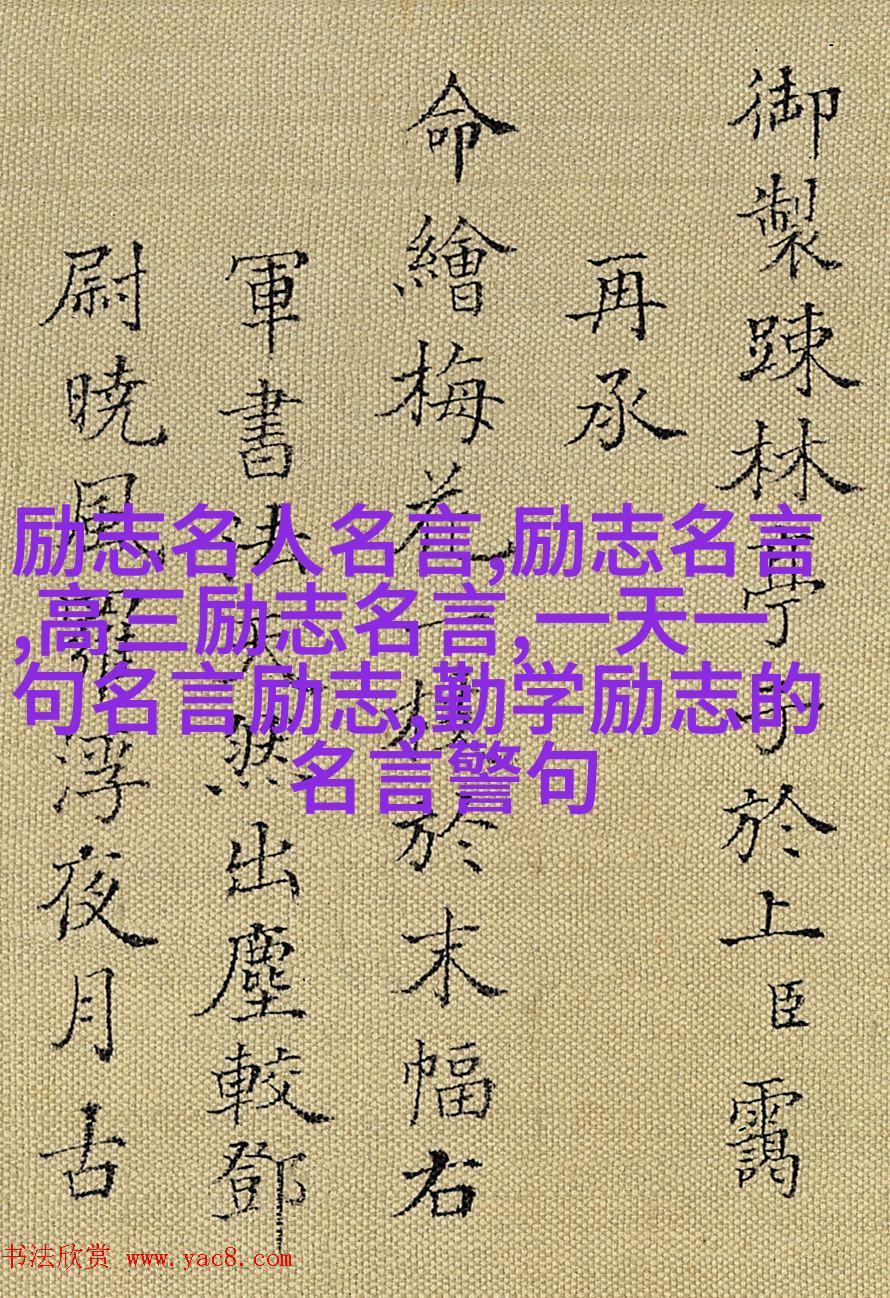 御製踈林亭子於上臣靄
再承
命繪梅花一於末幅右
軍書法天然出塵較鄧
尉暁風羅浮夜月古
励志名人名言,励志名言
,高三励志名言,一天一
句名言励志,勤学励志的
名言警句
书法欣赏 www.yac8.com